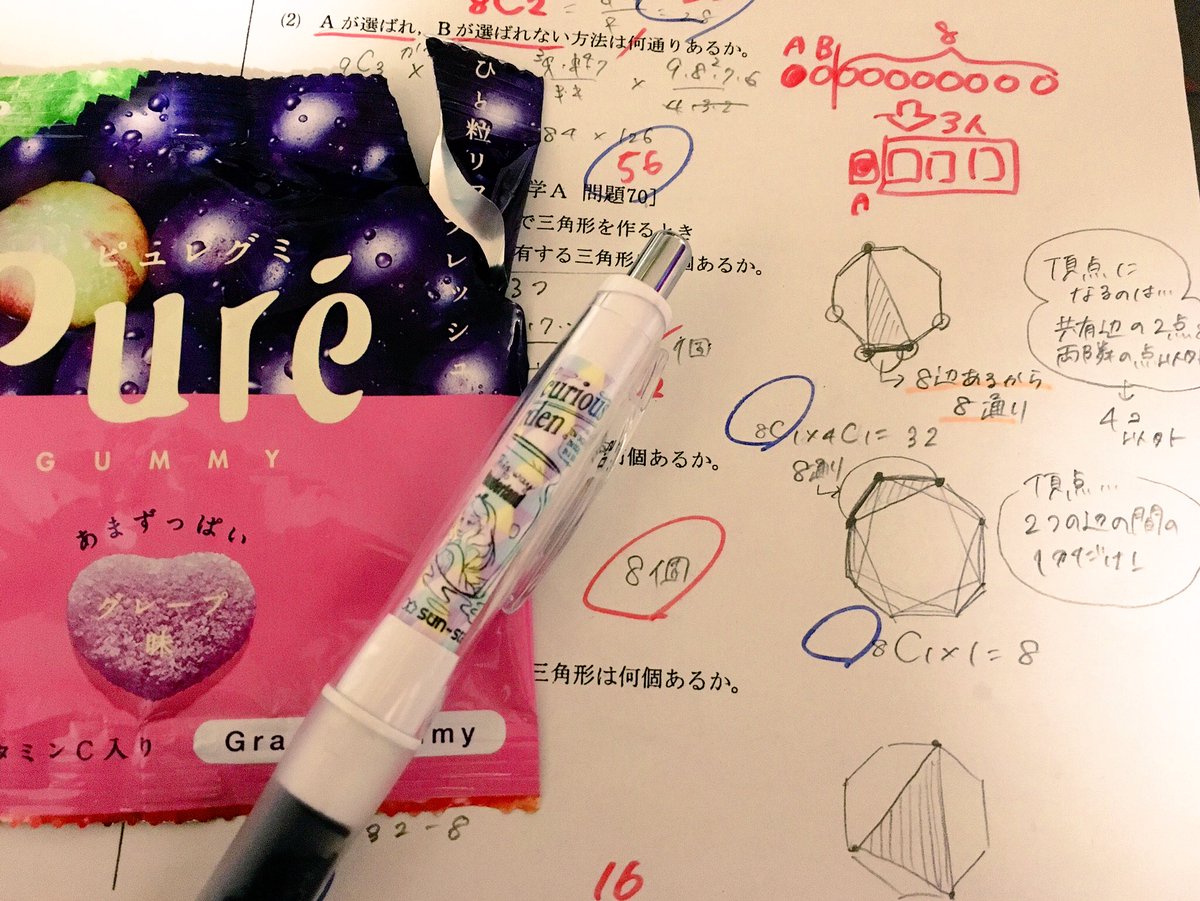 8C2 = 28
(2) Aが選ばれ，Bが選ばれない方法は何通りあるか。
9C3 ×
× 9・8・7・6
4・3・2
84 × 126
56
学A 問題70]
で三角形を作るとき
有する三角形は
個あるか。
3つ
何個あるか。
8個
三角形は何個あるか。
32-8
16
A B 8
3人
A
頂点に
なるのは…
共有辺の2点と
両隣の点以外
↓
4コ
以外
8辺あるから
8通り
8C1×4C1=32
8通り
頂点…
2つの辺の間の
1つだけ!
8C1×1=8
ひと粒リフレッシュ
ピュレグミ
Puré
GUMMY
あまずっぱい
グレープ
味
タミンC入り
Gra
mmy
curious
den
sun-st